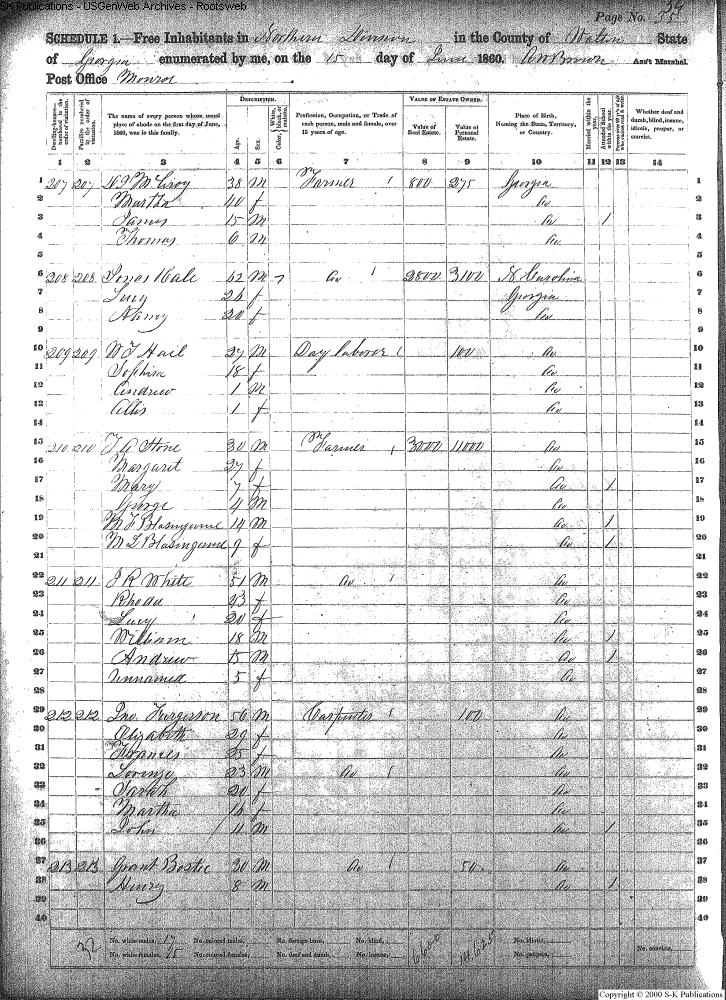 SK Publications - USGenWeb Archives - Rootsweb
Page No. 34
35
SCHEDULE 1.—Free Inhabitants in Northern Division in the County of Walton State
of Georgia enumerated by me, on the 15 day of June 1860. Ass't Marshal.
Post Office Monroe
Dwelling-houses—numbered in the order of visitation.
Families numbered in the order of visitation.
The name of every person whose usual place of abode on the first day of June, 1860, was in this family.
DESCRIPTION.
Age.
Sex.
Color, White, black, or mulatto.
Profession, Occupation, or Trade of each person, male and female, over 15 years of age.
VALUE OF ESTATE OWNED.
Value of Real Estate.
Value of Personal Estate.
Place of Birth, Naming the State, Territory, or Country.
Married within the year.
Attended School within the year.
Persons over 20 y'rs of age who cannot read & write.
Whether deaf and dumb, blind, insane, idiotic, pauper, or convict.
1 2 3 4 5 6 7 8 9 10 11 12 13 14
1 207 207 McCroy 38 M Farmer 1 800 275 Georgia 1
2 Martha 40 f Do 2
3 James 15 M Do 1 3
4 Thomas 6 M Do 4
5 5
6 208 208 Hale 62 M 7 Do 1 2800 3100 N Carolina 6
7 Lucy 26 f Georgia 7
8 Nancy 20 f Do 8
9 9
10 209 209 W T Hail 27 M Day laborer 1 100 Do 10
11 Sophira 18 f Do 11
12 Andrew 1 M Do 12
13 Allis 1 f Do 13
14 14
15 210 210 T A Stone 30 M Farmer 1 3000 11000 Do 15
16 Margaret 27 f Do 16
17 Mary 7 f Do 1 17
18 George 4 M Do 18
19 M F Blasingame 14 M Do 1 19
20 M L Blasingame 9 f Do 1 20
21 21
22 211 211 J R White 51 M Do 1 Do 22
23 Rhoda 43 f Do 23
24 Lucy 20 f Do 24
25 William 18 M Do 1 25
26 Andrew 15 M Do 1 26
27 Unnamed 5 f Do 27
28 28
29 212 212 Jno. Furgerson 56 M Carpenter 1 100 Do 29
30 Elizabeth 29 f Do 30
31 Frances 25 f Do 31
32 Lorenzo 23 M Do 1 Do 32
33 Sarah 20 f Do 33
34 Martha 16 f Do 34
35 John 11 M Do 1 35
36 36
37 213 213 Grant Bostic 30 M Do 1 50 Do 37
38 Henry 8 M Do 1 38
39 39
40 40
32 No. white males, 17 No. colored males, No. foreign born, No. blind, 6600 14,625 No. idiotic,
No. white females, 15 No. colored females, No. deaf and dumb, No. insane, No. paupers, No. convicts,
Copyright © 2000 S-K Publications